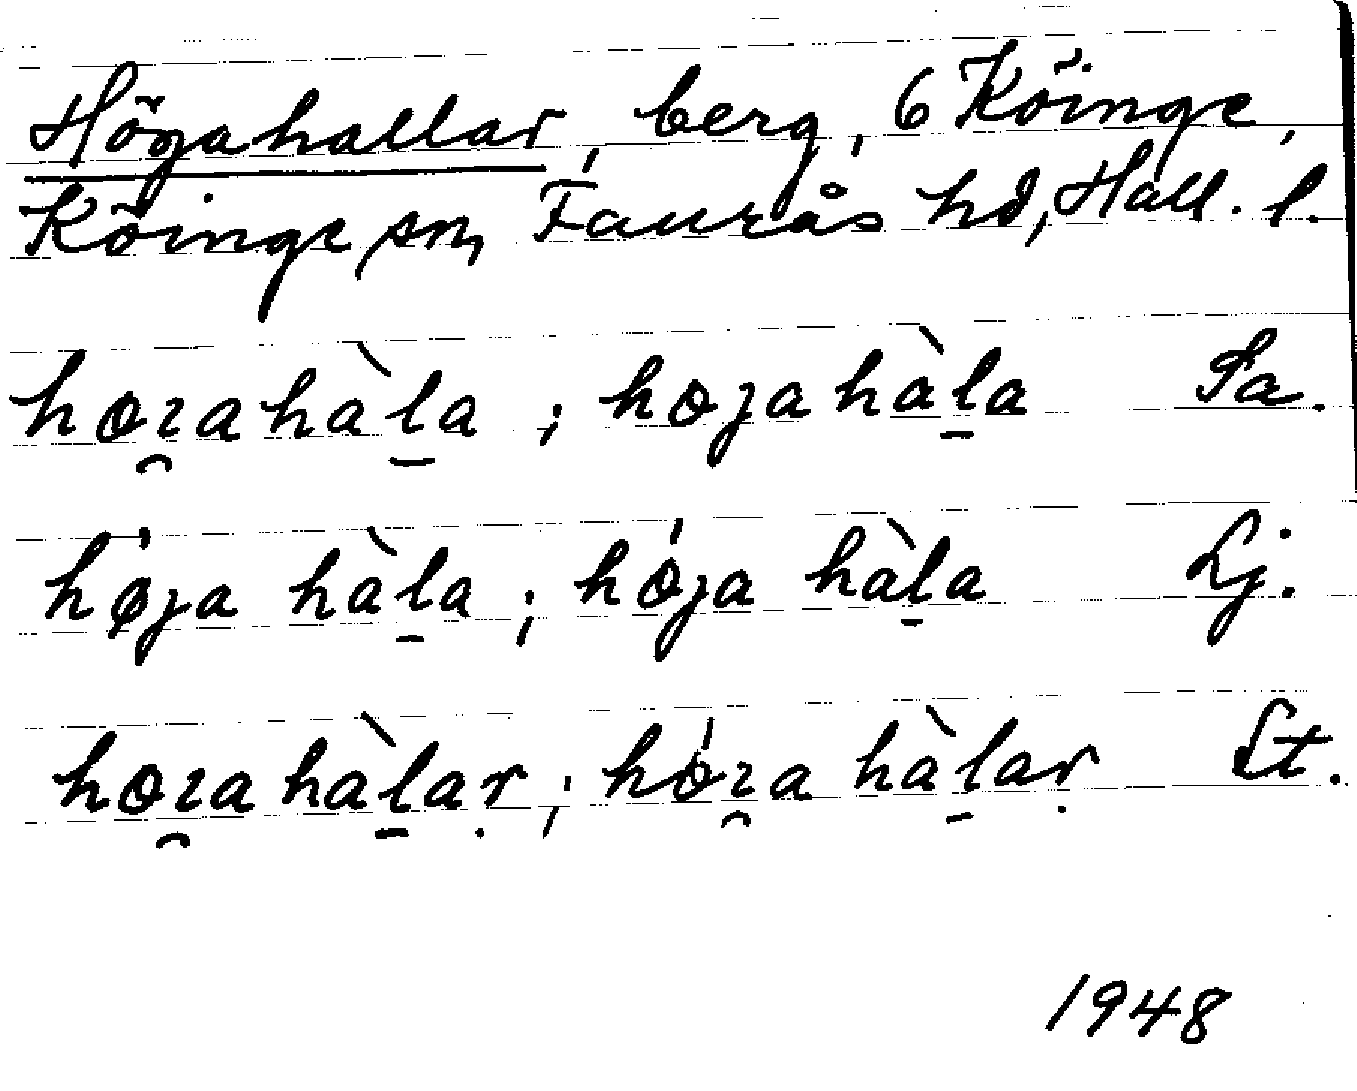 Högahallar, berg, 6 Köinge,
Köinge sn, Faurås hd, Hall. l.
hoɿ̯ahàl̠a ; hoȷahàl̠a Sa.
hǿȷa hàl̠a ; hóȷa hàl̠a Lj.
hoɿ̯a hàl̠aṛ ; hóɿ̯a hàl̠aṛ St.
1948